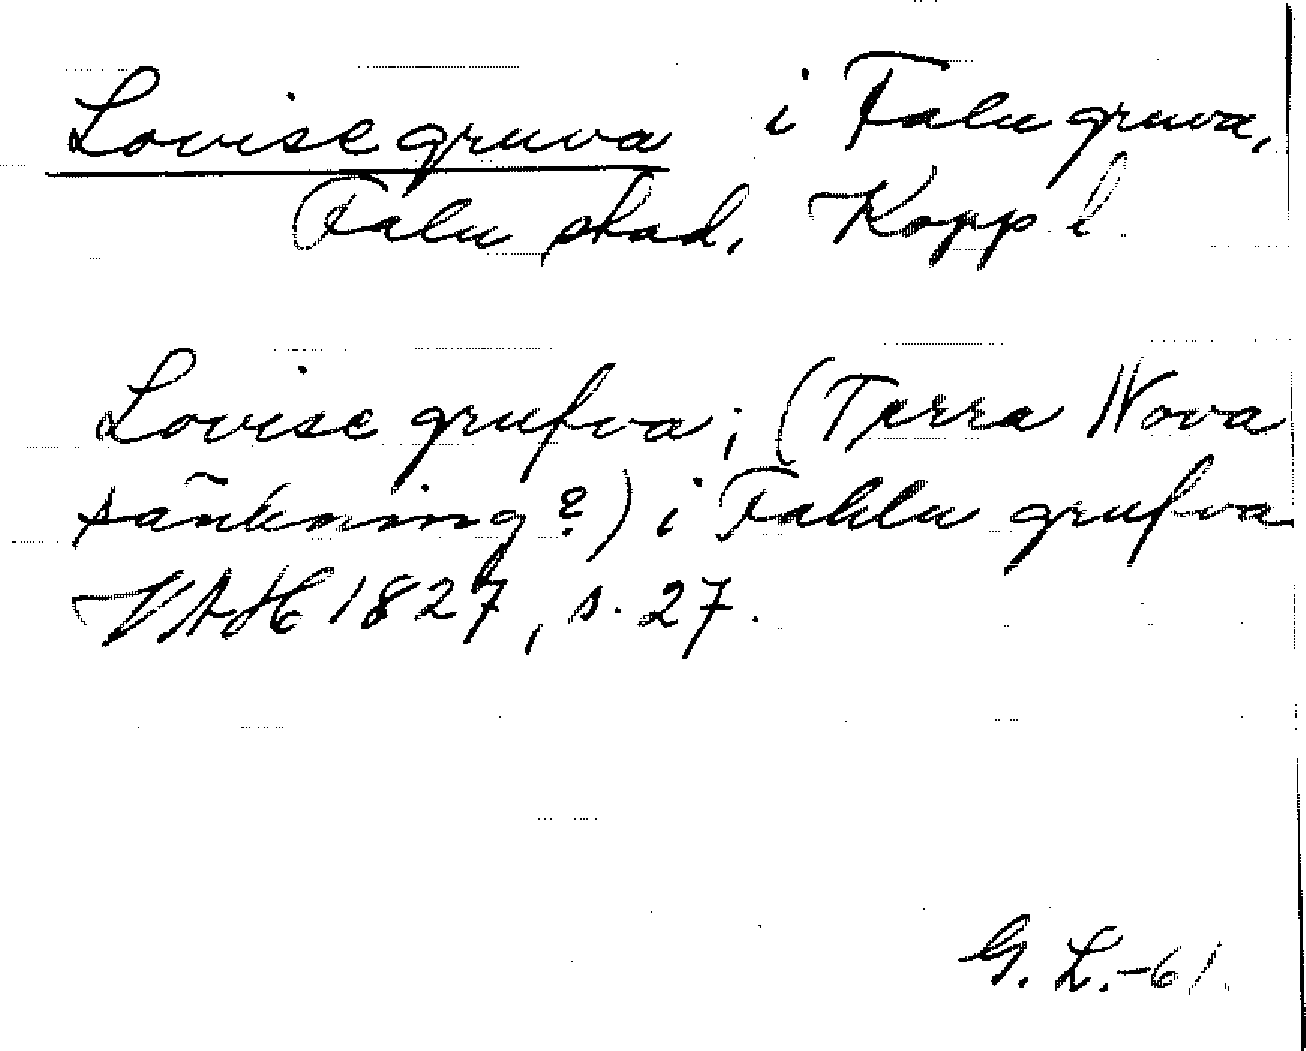 Louise gruva i Falu gruva,
Falu stad, Kopp l.
Louise grufva; (Terra Nova
sänkning?) i Fahlu grufva
VAH 1827, s. 27.
G. L. -61.